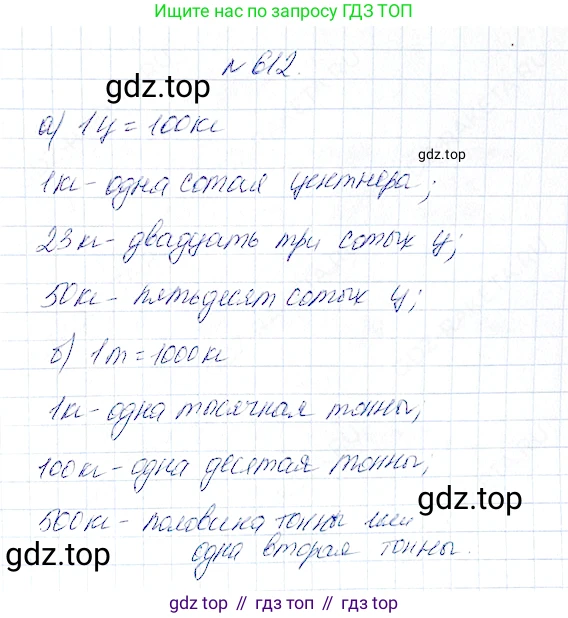 Ищите нас по запросу ГДЗ ТОП
№ 612.
gdz.top
а) 1ц = 100кг
gdz.top
1кг - одна сотая центнера;
23кг - двадцать три сотых ц;
50кг - пятьдесят сотых ц;
б) 1т = 1000кг
1кг - одна тысячная тонны;
100кг - одна десятая тонны;
gdz.top
500кг - половина тонны или
одна вторая тонны.
gdz.top
gdz.top // гдз топ // гдз.top